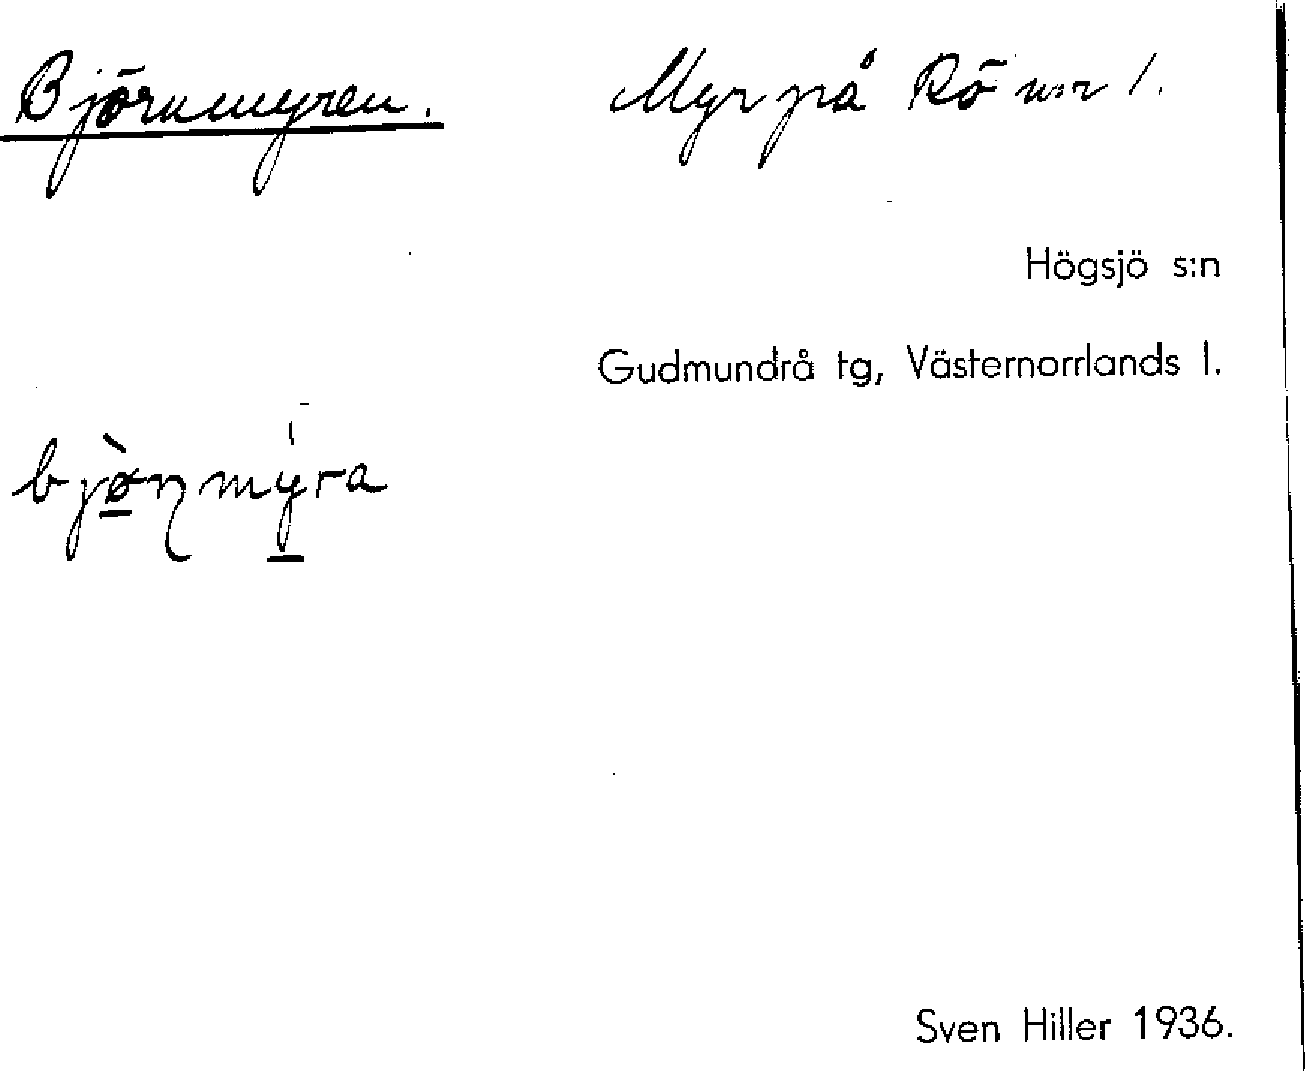 Björnmyren. Myr på Rö n:r 1.
Högsjö s:n
Gudmundrå tg, Västernorrlands l.
bjø̀ṇmy̍ra
Sven Hiller 1936.